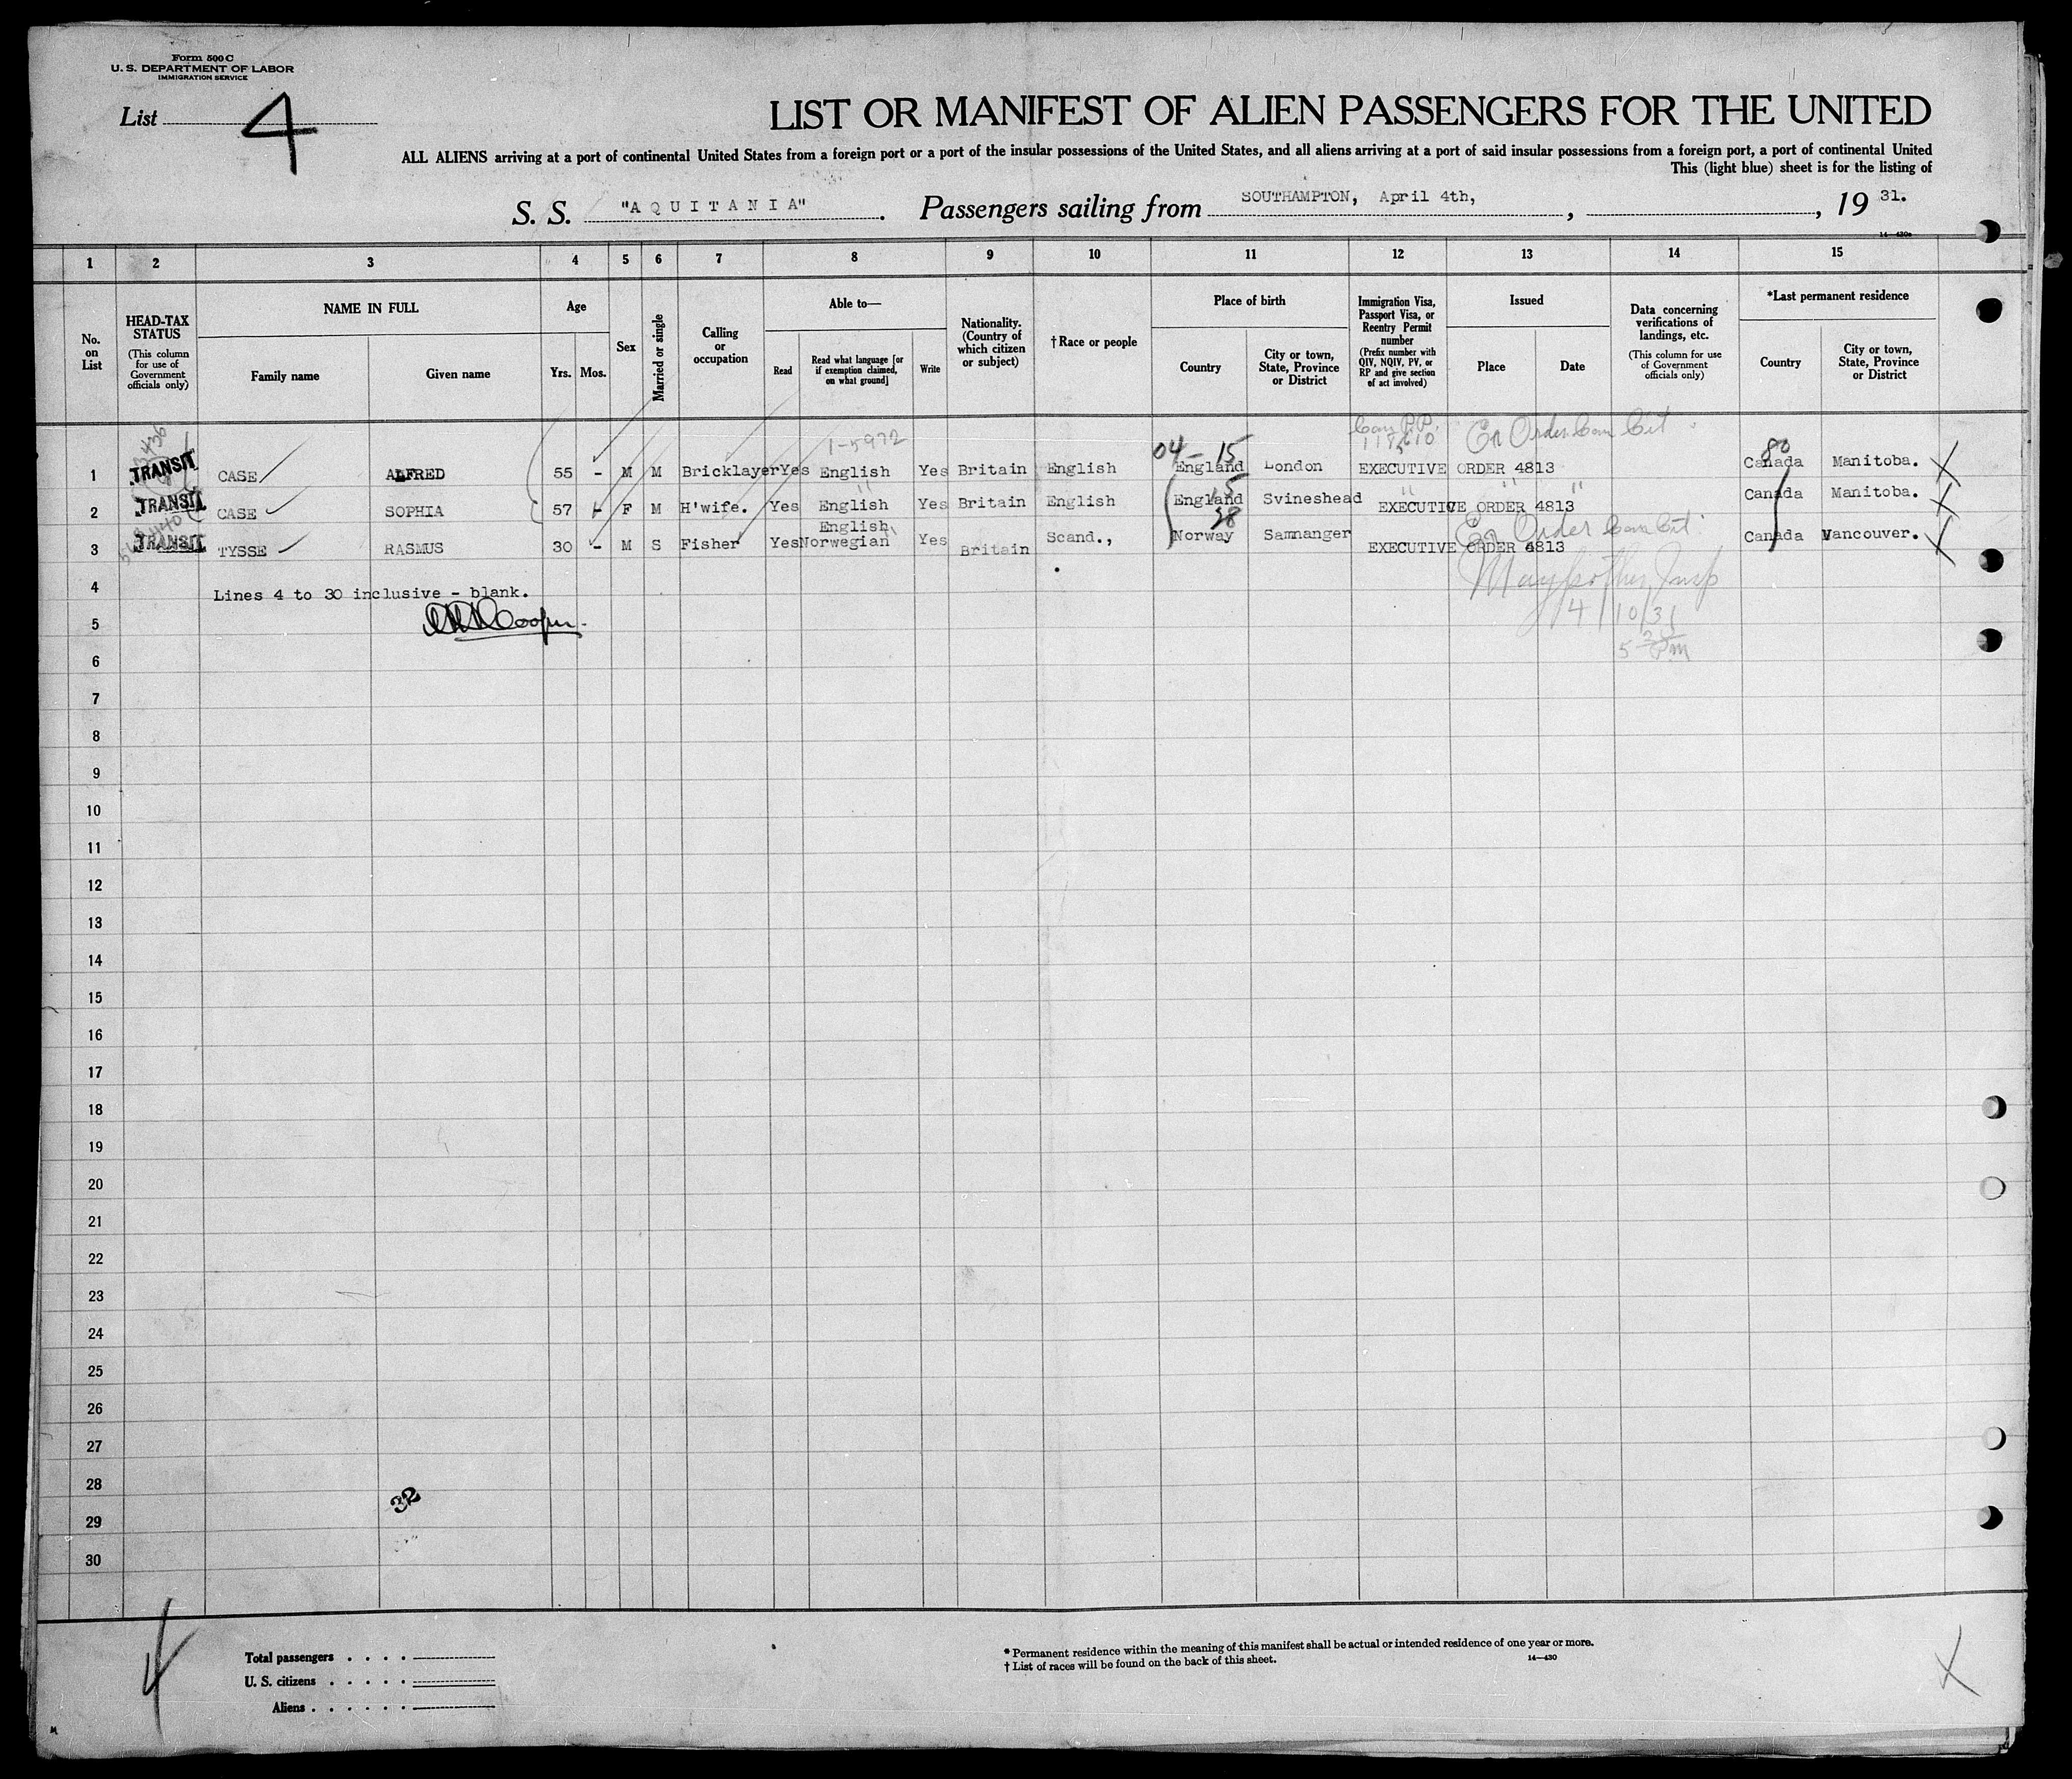 Form 500 C
U. S. DEPARTMENT OF LABOR
IMMIGRATION SERVICE
List 4
LIST OR MANIFEST OF ALIEN PASSENGERS FOR THE UNITED
ALL ALIENS arriving at a port of continental United States from a foreign port or a port of the insular possessions of the United States, and all aliens arriving at a port of said insular possessions from a foreign port, a port of continental United
This (light blue) sheet is for the listing of
S. S. "AQUITANIA". Passengers sailing from SOUTHAMPTON, April 4th, , , 19 31.
14—430a
1 2 3 4 5 6 7 8 9 10 11 12 13 14 15
No. on List
HEAD-TAX STATUS
(This column for use of Government officials only)
NAME IN FULL
Family name
Given name
Age
Yrs. Mos.
Sex
Married or single
Calling or occupation
Able to—
Read
Read what language [or if exemption claimed, on what ground]
Write
Nationality. (Country of which citizen or subject)
†Race or people
Place of birth
Country
City or town, State, Province or District
Immigration Visa, Passport Visa, or Reentry Permit number
(Prefix number with QIV, NQIV, PV, or RP and give section of act involved)
Issued
Place
Date
Data concerning verifications of landings, etc.
(This column for use of Government officials only)
*Last permanent residence
Country
City or town, State, Province or District
1-5972
04-15
Can P.P.
Ex Order Can Cit
80
1 TRANSIT CASE ALFRED 55 - M M Bricklayer Yes English Yes Britain English England London EXECUTIVE ORDER 4813 Canada Manitoba. X
15
2 TRANSIT CASE SOPHIA 57 - F M H'wife. Yes English Yes Britain English England Svineshead EXECUTIVE ORDER 4813 Canada Manitoba. X
28
Ex Order Can Cit.
3 TRANSIT TYSSE RASMUS 30 - M S Fisher Yes English Norwegian Yes Britain Scand., Norway Samnanger EXECUTIVE ORDER 4813 Canada Vancouver. X
4 Lines 4 to 30 inclusive - blank.
Insp
4/10/31
5 Cooper
6
7
8
9
10
11
12
13
14
15
16
17
18
19
20
21
22
23
24
25
26
27
28
32
29
30
Total passengers
U. S. citizens
Aliens
* Permanent residence within the meaning of this manifest shall be actual or intended residence of one year or more.
† List of races will be found on the back of this sheet.
14—430